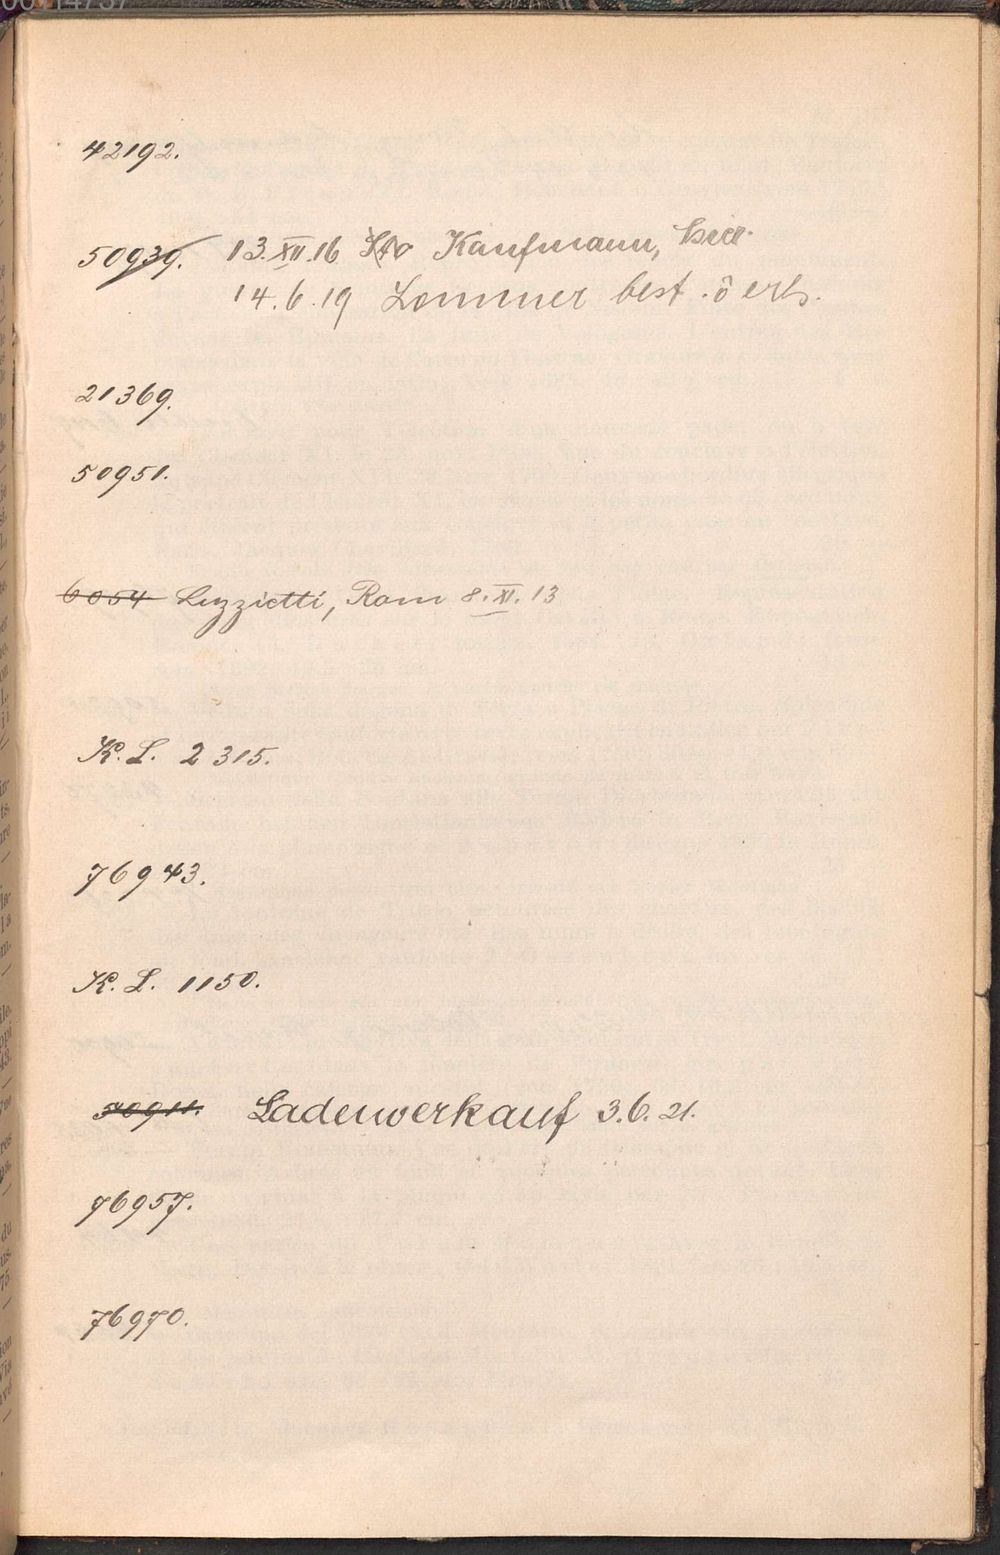 42192.
50939. 13.XII.16 Kaufmann, hier.
14.6.19 Lommer best. ö erh.
21369.
50951.
6054 Luzzietti, Rom 8.XI.13
K. L. 2315.
76943.
K. L. 1150.
50911. Ladenverkauf 3.6.21.
76957.
76970.